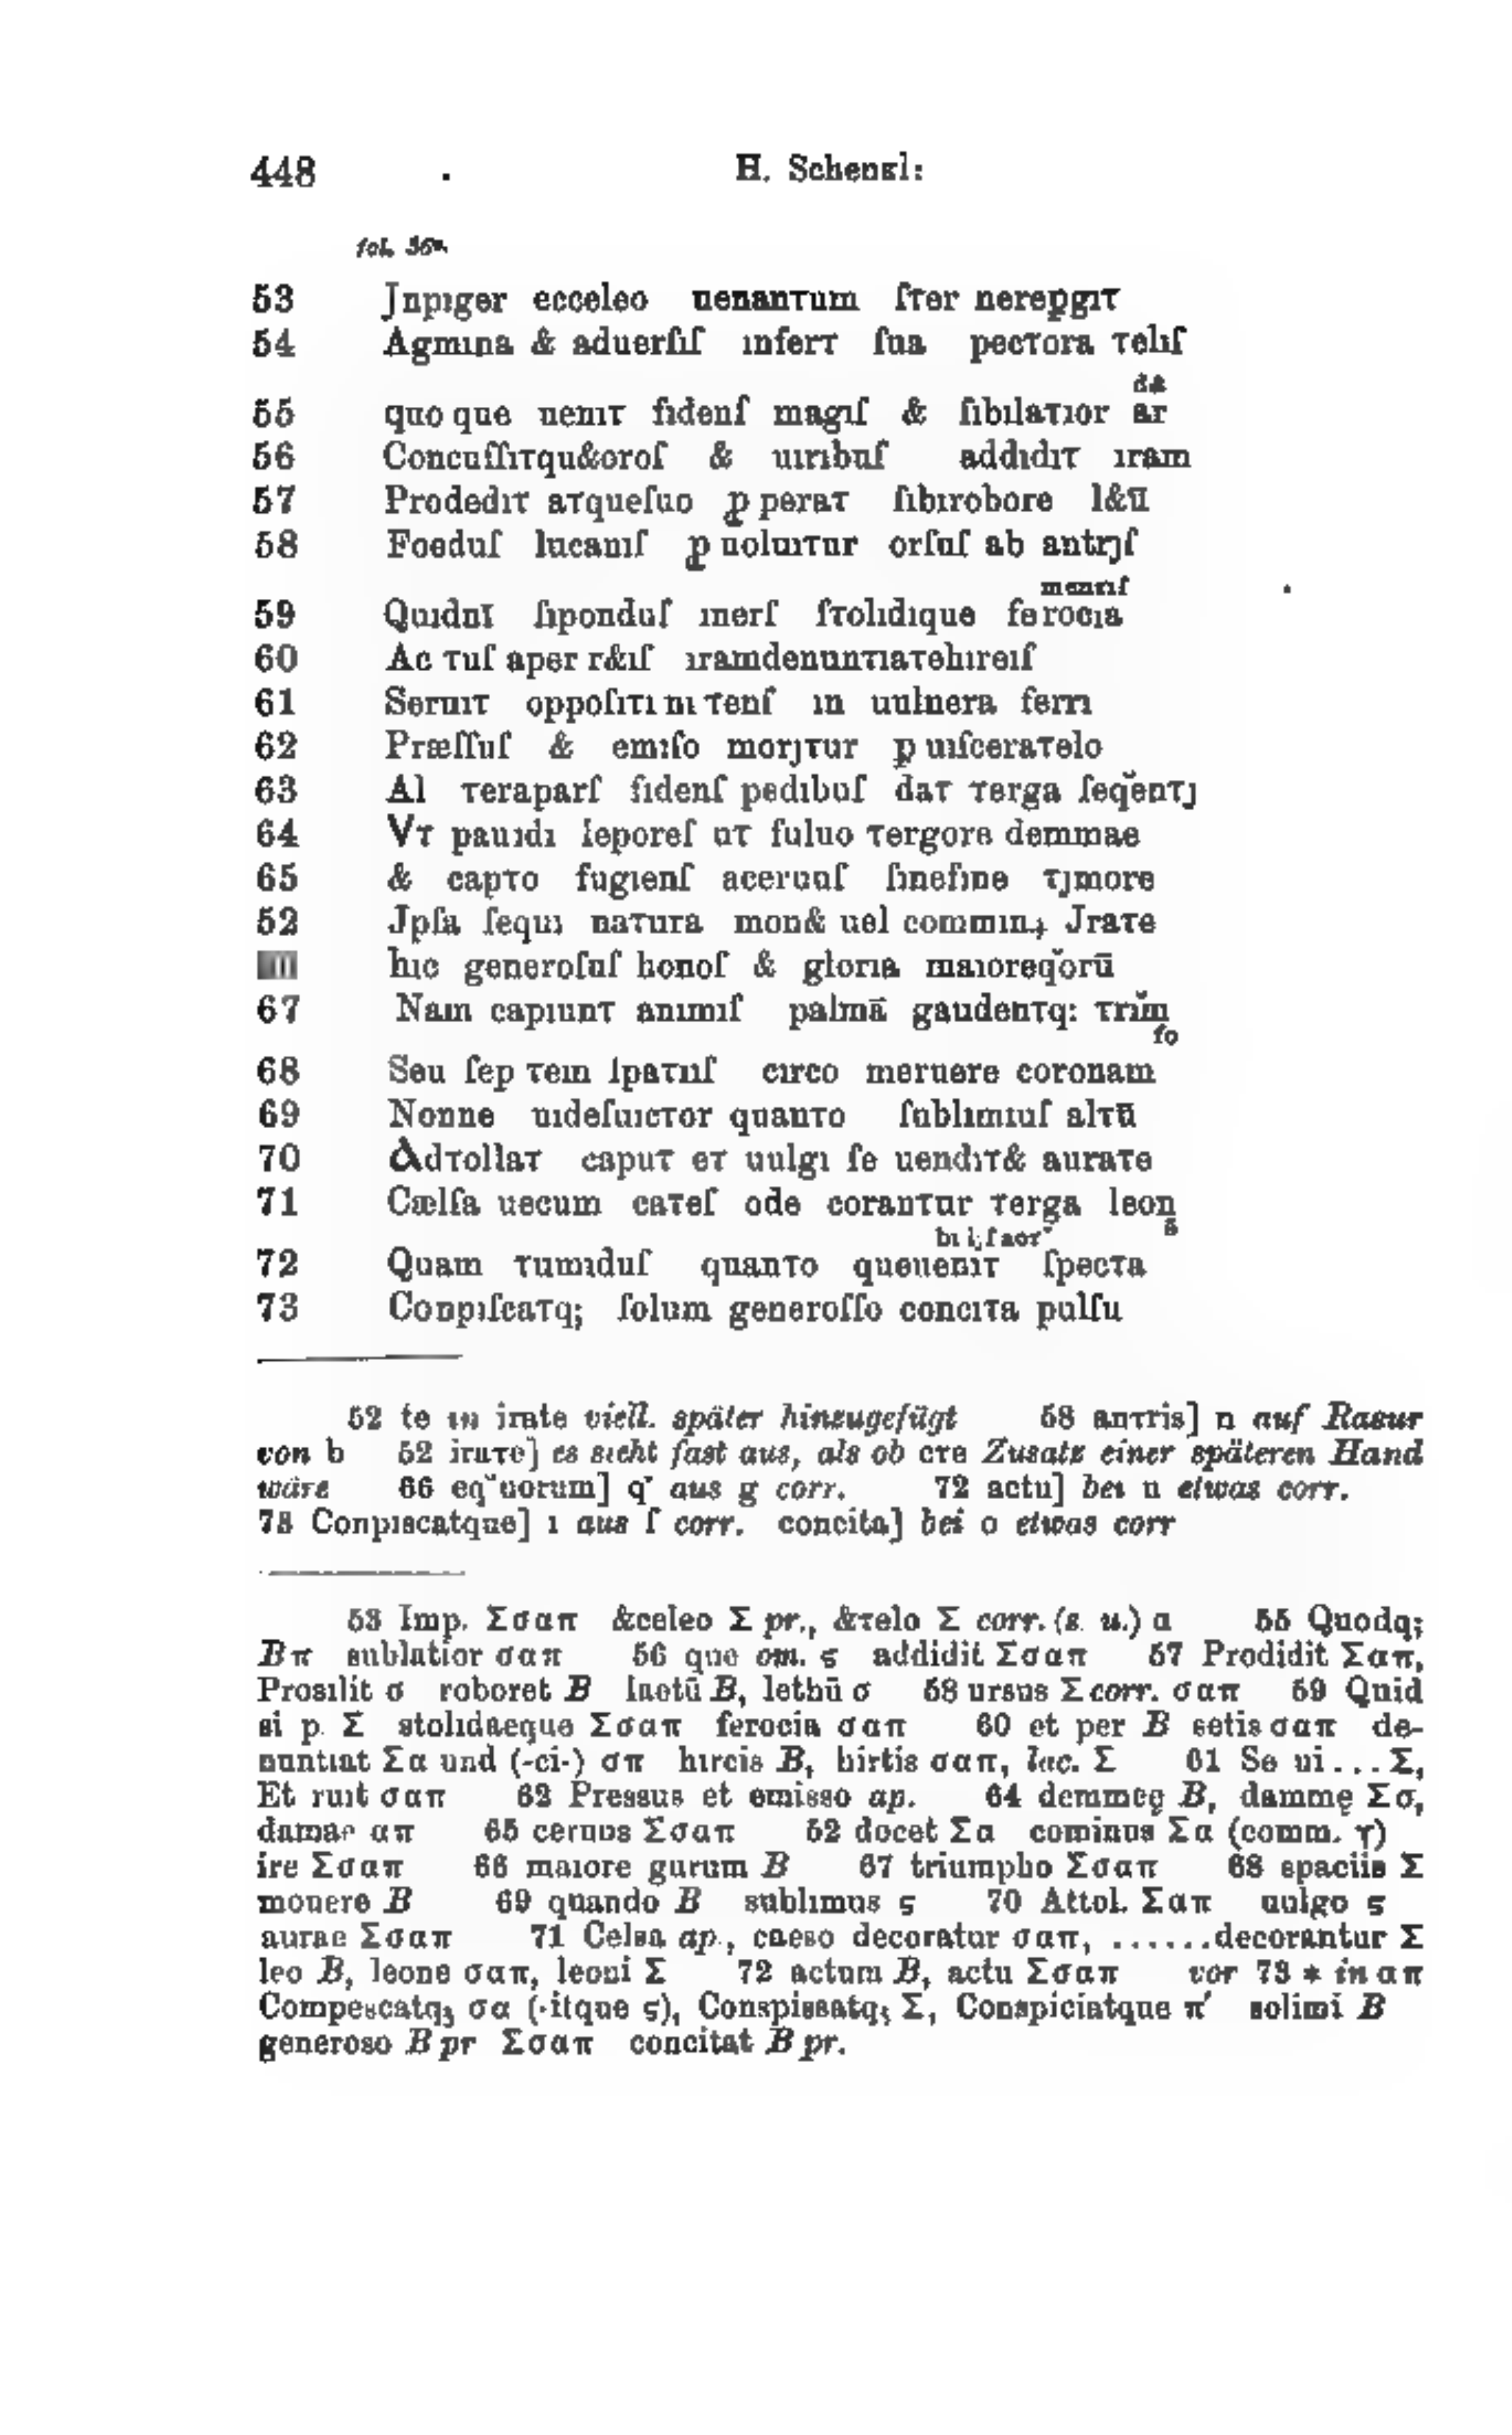 448 H. Schenkl:
fol. 56ʳ.
53 Jnpıger ecceleo uenanτum ſτer nereꝑgıτ
54 Agmına & aduerſıſ ınferτ ſua pecτora τelıſ
det
55 quo que uenıτ fıdenſ magıſ & ſıbılaτıor ar
56 Concuſſıτqu&oroſ & uırıbuſ addıdıτ ıram
57 Prodedıτ aτqueſuo ꝓ peraτ ſıbırobore l&ū
58 Foeduſ lucanıſ ꝓ uoluıτur orſuſ ab antrȷſ
menτıſ
59 Quıdnī ſıponduſ ınerſ ſτolıdıque ferocıa
60 Ac τuſ aper r&ıſ ıramdenunτıaτehıreıſ
61 Seruıτ oppoſıτı nı τenſ ın uulnera ferrı
62 Præſſuſ & emıſo morȷτur ꝑ uıſceraτelo
63 Al τeraparſ fıdenſ pedıbuſ daτ τerga ſeq̆enτȷ
64 Vτ pauıdı leporeſ uτ fuluo τergore demmae
65 & capτo fugıenſ aceruuſ ſınefıne τȷmore
52 Jpſa ſequı naτura mon& uel commın.; Jraτe
hıc generoſuſ honoſ & glorıa maıoreq̆orū
67 Nam capıunτ anımıſ palmā gaudenτq: τrım̆
fo
68 Seu ſep τem ſpaτııſ cırco meruere coronam
69 Nonne uıdeſuıcτor quanτo ſublımıuſ alτū
70 Adτollaτ capuτ eτ uulgı ſe uendıτ& auraτe
71 Cælſa uecum caτeſ ode coranτur τerga leon
bı lıſ acr
72 Quam τumıduſ quanτo queuenıτ ſpecτa
73 Conpıſcaτq; ſolum generoſſo concıτa pulſu
52 te in irate viell. später hinzugefügt 58 anτris] n auf Rasur
von b 52 iraτe] es sieht fast aus, als ob cre Zusatz einer späteren Hand
wäre 66 eq̆uorum] q̆ aus g corr. 72 actu] bei u etwas corr.
73 Conpıscatque] ı aus ſ corr. concita] bei o etwas corr
53 Imp. Σσαπ &celeo Σ pr., &τelo Σ corr. (s. u.) α 55 Quodq;
Bπ sublatior σαπ 56 que om. ς addidit Σσαπ 57 Prodidit Σαπ,
Prosılit σ roboret B laetū B, lethū σ 58 ursus Σ corr. σαπ 59 Quid
si p. Σ stolıdaeque Σσαπ ferocia σαπ 60 et per B setis σαπ de-
nuntıat Σα und (-ci-) σπ hırcis B, hirtis σαπ, lac. Σ 61 Se ui... Σ,
Et ruıt σαπ 62 Pressus et emisso ap. 64 demmeę B, dammę Σσ,
damae απ 65 ceruos Σσαπ 52 docet Σα cominus Σα (comm. γ)
ire Σσαπ 66 maıore gurum B 67 triumpho Σσαπ 68 spaciis Σ
mouere B 69 quando B sublımus ς 70 Attol. Σαπ uulgo ς
aurae Σσαπ 71 Celsa ap., caeso decoratur σαπ, ......decorantur Σ
leo B, leone σαπ, leoni Σ 72 actum B, actu Σσαπ vor 73 * in απ
Compescatq; σα (-itque ς), Conspissatq; Σ, Conspiciatque π′ solimi B
generoso B pr Σσαπ concitat B pr.